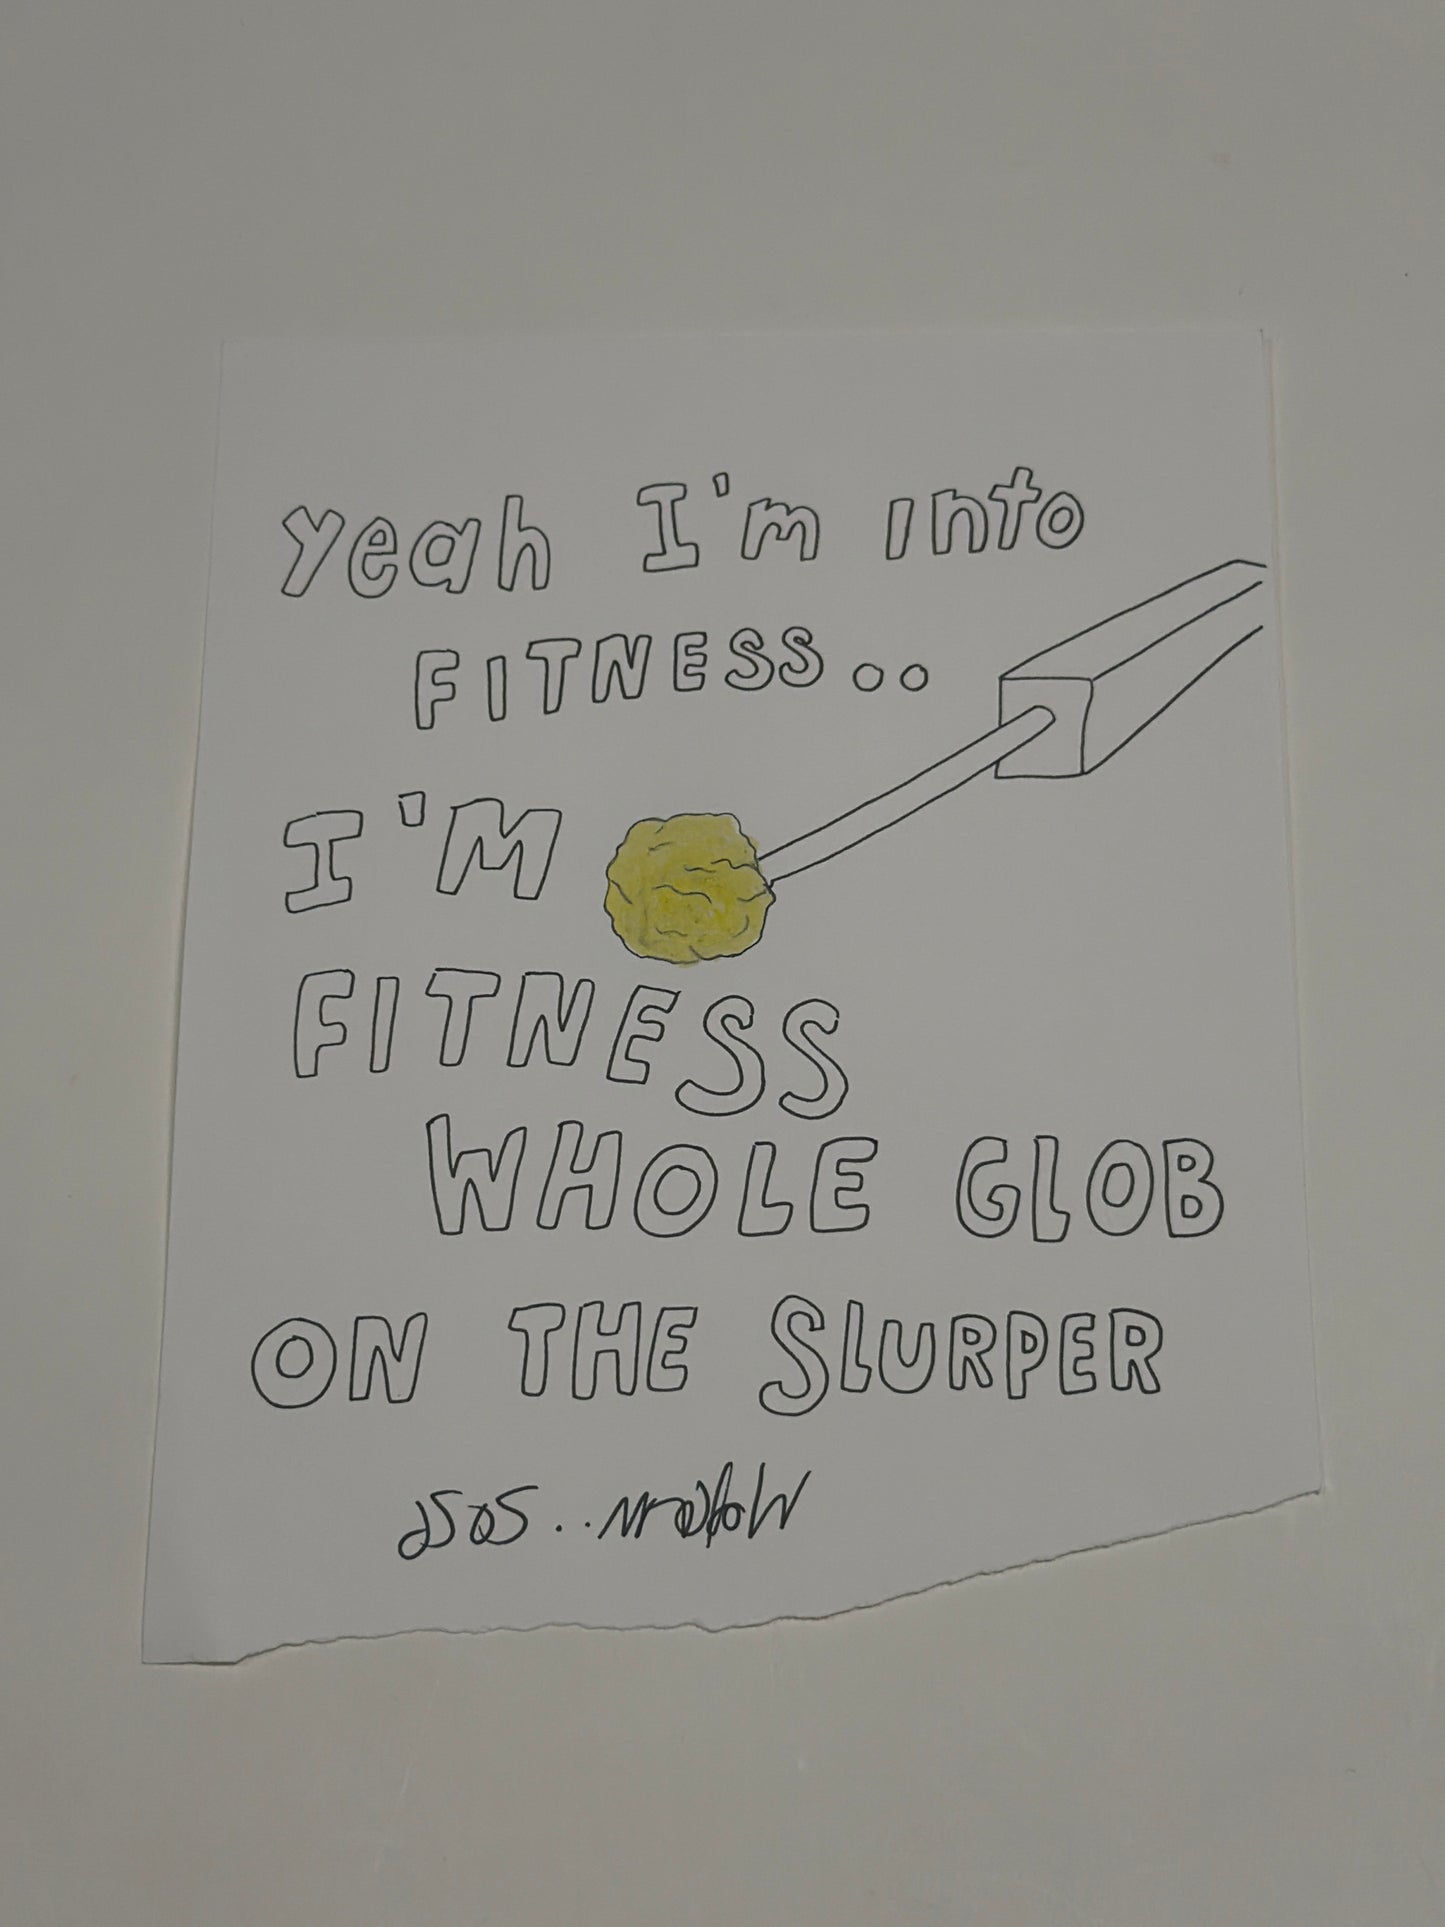 Yeah I'm into
FITNESS..
I'M
FITNESS
WHOLE GLOB
ON THE SLURPER